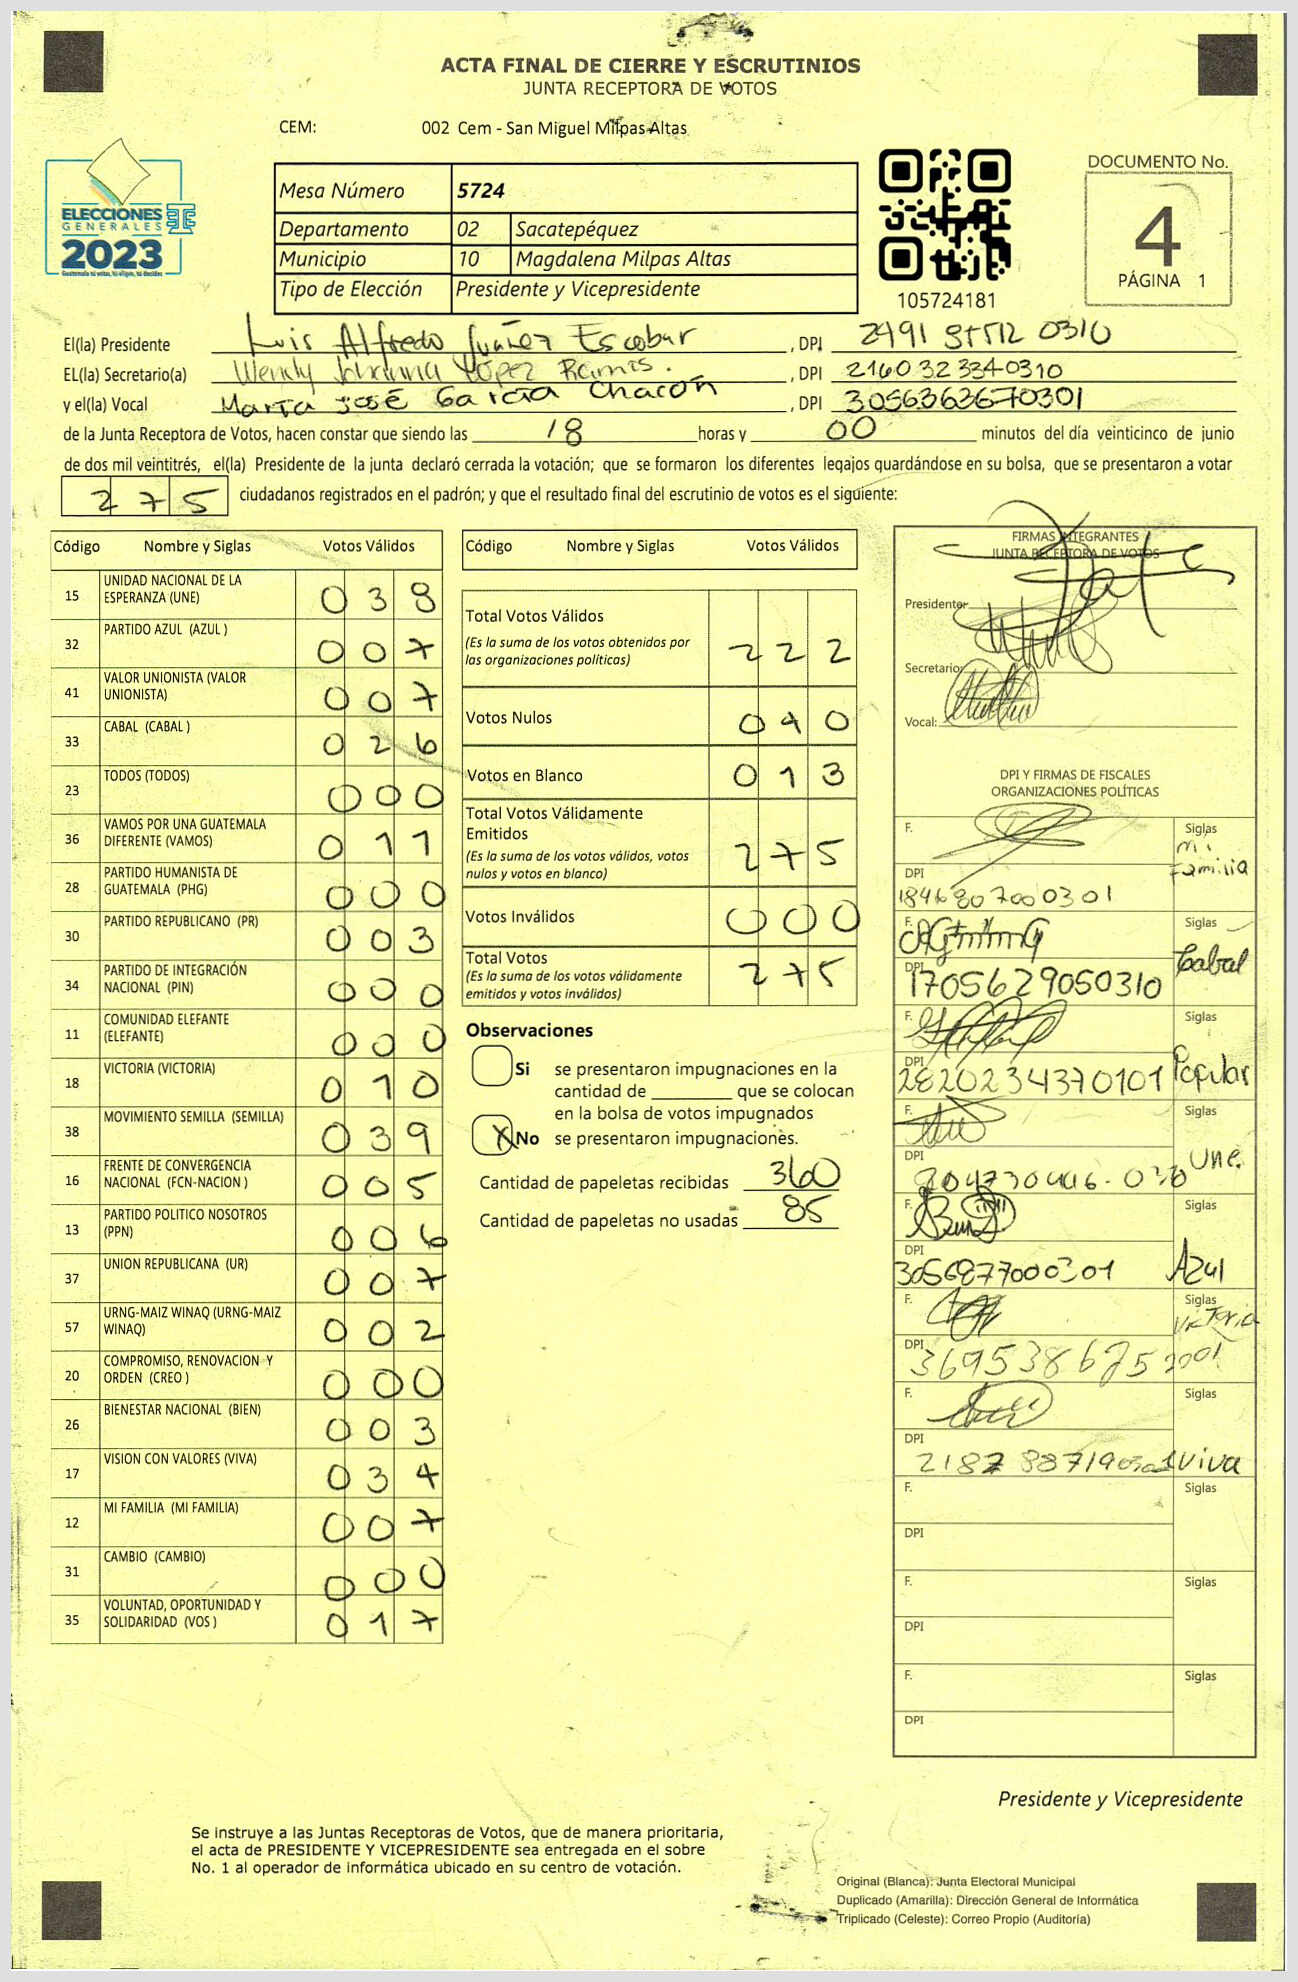 ACTA FINAL DE CIERRE Y ESCRUTINIOS
JUNTA RECEPTORA DE VOTOS
CEM: 002 Cem - San Miguel Milpas Altas
ELECCIONES
GENERALES
2023
Guatemala tú votas, tú eliges, tú decides
Mesa Número 5724
Departamento 02 Sacatepéquez
Municipio 10 Magdalena Milpas Altas
Tipo de Elección Presidente y Vicepresidente
105724181
DOCUMENTO No.
4
PÁGINA 1
El(la) Presidente Luis Alfredo Núñez Escobar , DPI 2491 0310
EL(la) Secretario(a) Wendy Johanna López Ramis. , DPI 2160 32334 0310
y el(la) Vocal María José García Chacón , DPI 3056363670301
de la Junta Receptora de Votos, hacen constar que siendo las 18 horas y 00 minutos del día veinticinco de junio
de dos mil veintitrés, el(la) Presidente de la junta declaró cerrada la votación; que se formaron los diferentes legajos guardándose en su bolsa, que se presentaron a votar
275 ciudadanos registrados en el padrón; y que el resultado final del escrutinio de votos es el siguiente:
Código Nombre y Siglas Votos Válidos
15 UNIDAD NACIONAL DE LA ESPERANZA (UNE) 038
32 PARTIDO AZUL (AZUL ) 007
41 VALOR UNIONISTA (VALOR UNIONISTA) 007
33 CABAL (CABAL ) 026
23 TODOS (TODOS) 000
36 VAMOS POR UNA GUATEMALA DIFERENTE (VAMOS) 011
28 PARTIDO HUMANISTA DE GUATEMALA (PHG) 000
30 PARTIDO REPUBLICANO (PR) 003
34 PARTIDO DE INTEGRACIÓN NACIONAL (PIN) 000
11 COMUNIDAD ELEFANTE (ELEFANTE) 000
18 VICTORIA (VICTORIA) 010
38 MOVIMIENTO SEMILLA (SEMILLA) 039
16 FRENTE DE CONVERGENCIA NACIONAL (FCN-NACION ) 005
13 PARTIDO POLITICO NOSOTROS (PPN) 006
37 UNION REPUBLICANA (UR) 007
57 URNG-MAIZ WINAQ (URNG-MAIZ WINAQ) 002
20 COMPROMISO, RENOVACION Y ORDEN (CREO ) 000
26 BIENESTAR NACIONAL (BIEN) 003
17 VISION CON VALORES (VIVA) 034
12 MI FAMILIA (MI FAMILIA) 007
31 CAMBIO (CAMBIO) 000
35 VOLUNTAD, OPORTUNIDAD Y SOLIDARIDAD (VOS ) 017
Código Nombre y Siglas Votos Válidos
Total Votos Válidos 222
(Es la suma de los votos obtenidos por
las organizaciones políticas)
Votos Nulos 040
Votos en Blanco 013
Total Votos Válidamente
Emitidos 275
(Es la suma de los votos válidos, votos
nulos y votos en blanco)
Votos Inválidos 000
Total Votos 275
(Es la suma de los votos válidamente
emitidos y votos inválidos)
Observaciones
Si se presentaron impugnaciones en la
cantidad de ________ que se colocan
en la bolsa de votos impugnados
X No se presentaron impugnaciones.
Cantidad de papeletas recibidas 360
Cantidad de papeletas no usadas 85
FIRMAS INTEGRANTES
JUNTA RECEPTORA DE VOTOS
Presidente:
Secretario:
Vocal:
DPI Y FIRMAS DE FISCALES
ORGANIZACIONES POLÍTICAS
F. Siglas
Mi Familia
DPI
1846807000301
F. Siglas
Cabal
DPI
1705629050310
F. Siglas
Popular
DPI
2820234370101
F. Siglas
Une.
DPI
F. Siglas
Azul
DPI
3056877000301
F. Siglas
Victoria
DPI
3695386752001
F. Siglas
Viva
DPI
F. Siglas
DPI
F. Siglas
DPI
F. Siglas
DPI
Presidente y Vicepresidente
Se instruye a las Juntas Receptoras de Votos, que de manera prioritaria,
el acta de PRESIDENTE Y VICEPRESIDENTE sea entregada en el sobre
No. 1 al operador de informática ubicado en su centro de votación.
Original (Blanca): Junta Electoral Municipal
Duplicado (Amarilla): Dirección General de Informática
Triplicado (Celeste): Correo Propio (Auditoría)